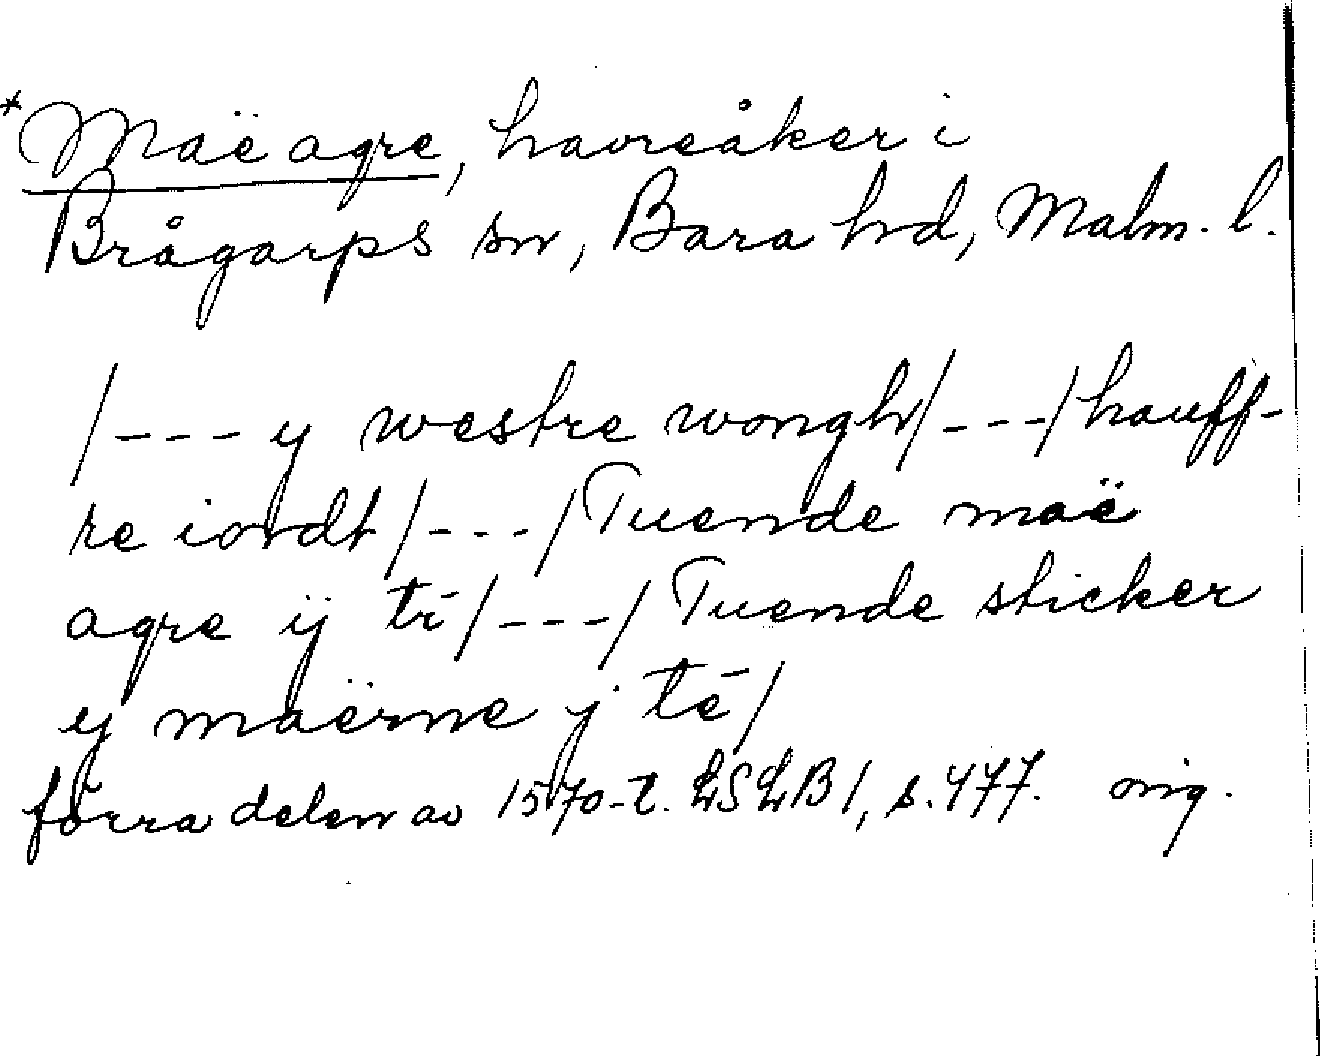 *Maë agre, havreåker i
Brågarps sn, Bara hd, Malm. l.
/--- y westre wongh/---/hauff-
re iordt/---/Tuende maë
agre ÿ tē/---/Tuende sticker
y maërne j tē/
förra delen av 1570-t. LSLB 1, s. 477. orig.